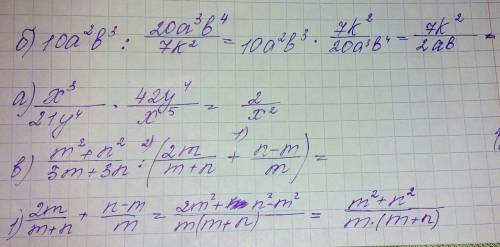 б) 10a²b³ : 20a³b⁴/7k² = 10a²b³ · 7k²/20a³b⁴ = 7k²/2ab
а) x³/21y⁴ · 42y⁴/x⁵ = 2/x²
в) (m²+n²)/(3m+3n) :²⁾ (2m/(m+n) +¹⁾ (n-m)/m) =
1) 2m/(m+n) + (n-m)/m = (2m²+n²-m²)/(m(m+n)) = (m²+n²)/(m·(m+n))